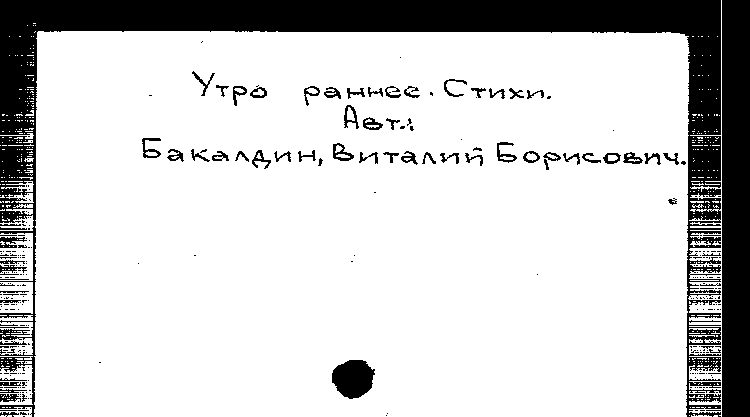 Утро раннее. Стихи.
Авт.:
Бакалдин, Виталий Борисович.